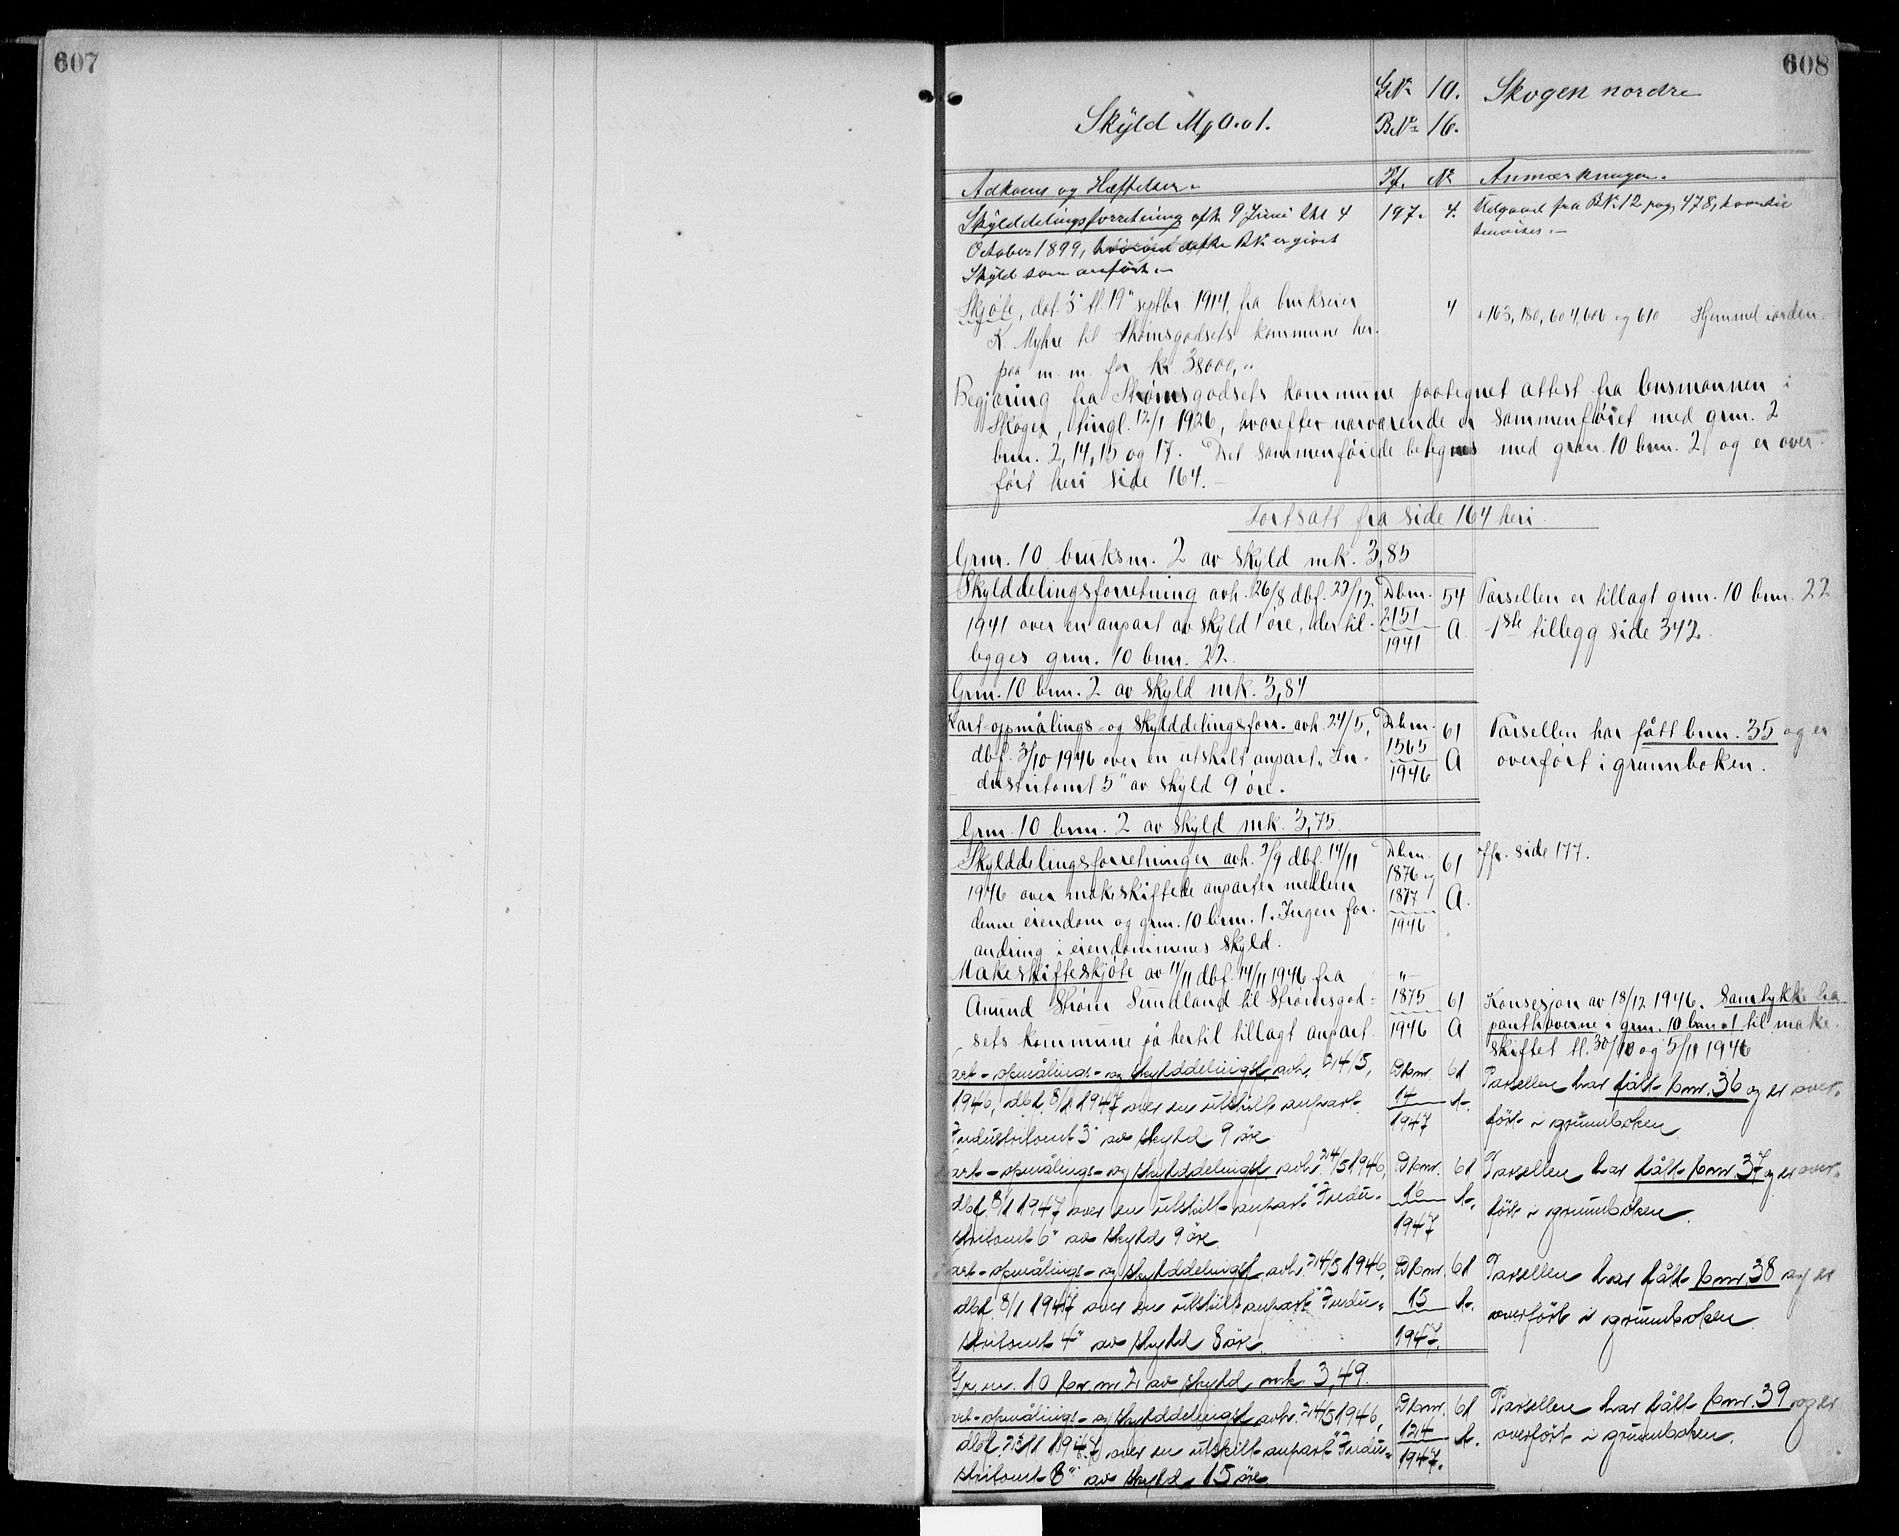 607
608
G.No 10. Skogen nordre
Skyld M 0.01. B.No 16.
Adkomst og Hæftelser. Pf. No Anmærkninger.
Skylddelingsforretning afh. 9 Juni thl 4 197. 4. Udgaaet fra B.No 12 pag. 478, hvortil
October 1899, hvorved dette B.No er givet henvises.
Skyld som anført.
Skjøte, dat. 3 tl. 19 septbr 1914, fra brukseier 4 163, 180, 604, 606 og 610 Hjemmel i orden.
K. Myhre til Strømsgodsets kommune her-
paa m. m. for kr 38000,
Begjæring fra Strømsgodsets kommune paategnet attest fra lensmannen i
Skoger, tingl. 12/1 1926, hvorefter nærværende er sammenføiet med grm. 2
bnr. 2, 14, 15 og 17. Det sammenføiede betegnes med grnr. 10 bnr. 2, og er over-
ført heri side 164.
Fortsatt fra side 164 heri
Grnr. 10 bruksnr. 2 av skyld mk. 3,85
Skylddelingsforretning avh. 26/8 dbf. 23/12 Dbnr. 54 Parsellen er tillagt grnr. 10 bnr. 22
1941 over en anpart av skyld 1 øre, der til- 2151 A. 1ste tillegg side 342.
legges grnr. 10 bnr. 22. 1941
Grnr. 10 bnr. 2 av skyld mk. 3,84
Kart-oppmålings- og skylddelingsforr. avh. 24/5, Dbnr. 61 Parsellen har fått bnr. 35 og er
dbf. 3/10 1946 over en utskilt anpart „In- 1565 A overført i grunnboken.
dustritomt 5" av skyld 9 øre. 1946
Grnr. 10 bnr. 2 av skyld mk. 3,75
Skylddelingsforretninger avh. 3/9 dbf. 14/11 Dbnr. 61 Jfr. side 177.
1946 over makeskiftede anparter mellem 1876 og
denne eiendom og grnr. 10 bnr. 1. Ingen for- 1877 A.
andring i eiendommenes skyld. 1946
Makeskifteskjøte av 11/11 dbf. 14/11 1946 fra "
Amund Strøm Sundland til Strømsgod- 1875 61 Konsesjon av 18/12 1946. Samtykke fra
sets kommune på hertil tillagt anpart. 1946 A panthaverne i grnr. 10 bnr. 1 til make-
skiftet tl. 30/10 og 5/11 1946
Kart-opmålings- og skylddelingsf. avh. 24/5, Dbnr. 61 Parsellen har fått bnr. 36 og er over-
1946, dbf. 8/1 1947 over en utskilt anpart 14 A. ført i grunnboken.
Industritomt 3" av skyld 9 øre 1947
Kart-opmålings- og skylddelingsf. avh. 24/5 1946, Dbnr. 61 Parsellen har fått bnr. 37 og er over-
dbf. 8/1 1947 over en utskilt anpart "Indu- 16 A. ført i grunnboken.
stritomt 6" av skyld 9 øre. 1947
Kart-opmålings- og skylddelingsf. avh. 24/5 1946, Dbnr. 61 Parsellen har fått bnr. 38 og er
dbf. 8/1 1947 over en utskilt anpart "Indu- 15 A. overført i grunnboken.
stritomt 4" av skyld 8 øre. 1947.
Gr.nr. 10 br.nr. 2 av skyld mk. 3,49.
Kart-opmålings- og skylddelingsf. avh. 24/5 1946, Dbnr. 61 Parsellen har fått bnr. 39 og er
dbf. 23/1 1947 over en utskilt anpart "Indu- 124 A. overført i grunnboken.
stritomt 8" av skyld 15 øre. 1947.